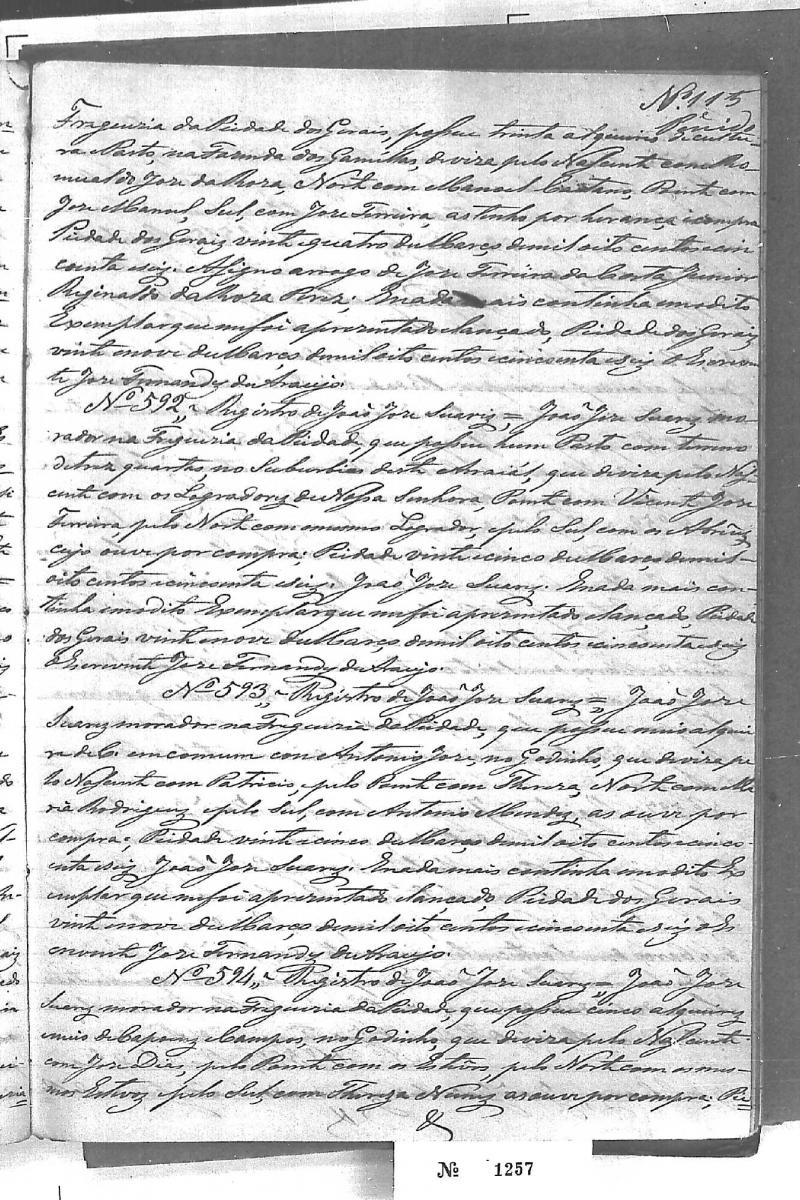 Nº 115
Pinido
Freguezia da Piedade dos Gerais, possue trinta alqueires de cultu-
ra e Pasto, na Fazenda dos Gamellas, deviza pelo Nascente com Ro-
mualdo Jose da Roza, Norte com Manoel Caetano, Poente com
Jose Manoel, Sul, com Jose Ferreira, as tenho por herança e compra
Piedade dos Geraiz vinte e quatro de Março de mil oito centos e cin
coenta e seiz. Asigno arrogo de Jose Ferreira da Costa Junior
Reginaldo da Roza Piriz; Enada mais continha em o dito
Exemplar que me foi aprezentado e lançado, Piedade dos Geraiz
vinte e nove de Março de mil oito centos e cincoenta e seiz. O Escreven
te Jose Fernandz de Araujo.
Nº 592,, Registro de João Jose Suariz = João Joze Suarez mo-
rador na Freguezia da Piedade, que possue hum Pasto com terreno
de trez quartas no Suburbios deste Araial, que deviza pelo Nas
cente com os Logradorez de Nossa Senhora, Poente com Vicente Jose
Ferreira, pelo Norte com o mesmo Logrador, e pelo Sul, com os
cujo ouve por compra; Piedade vinte e cinco de Março de mil
oito centos e cincoenta e seiz. João Jose Suarez. Enada mais con-
tinha in o dito Exemplar que me foi aprezentado e lancado, Piedade
dos Gerais vinte e nove de Março de mil oito centos e cincoenta e seiz
O Escrevente Jose Fernandz de Araujo.
Nº 593,, Registro de João Joze Suarez = João Joze
Suarez morador na Freguezia da Piedade, que possue meio alquei
re de C. em comum con Antonio Jose, no Godinho, que deviza pe
lo Nascente com Patricio, e pelo Poente com Thereza, Norte com Ma
ria Rodriguez e pelo Sul, com Antonio Mendez, as ouve por
compra, Piedade vinte e cinco de Março de mil oito centos e cinco-
enta e seiz João Joze Suarez. Enada mais continha em o dito Ex
emplar que me foi aprezentado e lançado, Piedade dos Gerais
vinte e nove de Março de mil oito centos e cincoenta e seiz o Es
crevente Jose Fernandz de Araujo.
Nº 594,, Registro de João Joze Suarez = João Joze
Suarez morador na Freguezia da Piedade, que possue cinco alqueirez
e meio de Capoens e Campos, no Godinho, que deviza pelo Nascente
com Jose Diaz, pelo Poente com os Estêvos, pelo Norte com os mes-
mos Estevoz e pelo Sul, com Thereza Nunez as ouve por compra, Pie=
Nº 1257